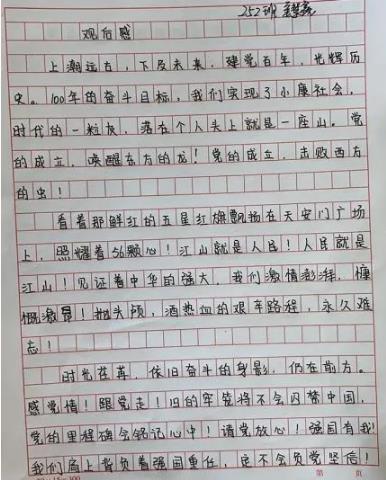 252班
观后感
上溯远古，下及未来，建党百年，光辉历
史。100年的奋斗目标，我们实现了小康社会，
时代的一粒灰，落在个人头上就是一座山。党
的成立，唤醒东方的龙！党的成立，击败西方
的虫！
看着那鲜红的五星红旗飘扬在天安门广场
上，照耀着56颗心！江山就是人民！人民就是
江山！见证着中华的强大，我们激情澎湃，慷
慨激昂！抛头颅，洒热血的艰辛路程，永久难
忘！
时光荏苒，依旧奋斗的身影，仍在前方。
感党情！跟党走！旧的牢笼将不会囚禁中国，
党的里程碑会铭记心中！请党放心！强国有我！
我们肩上背负着强国重任，定不会负党坚信！
第 页